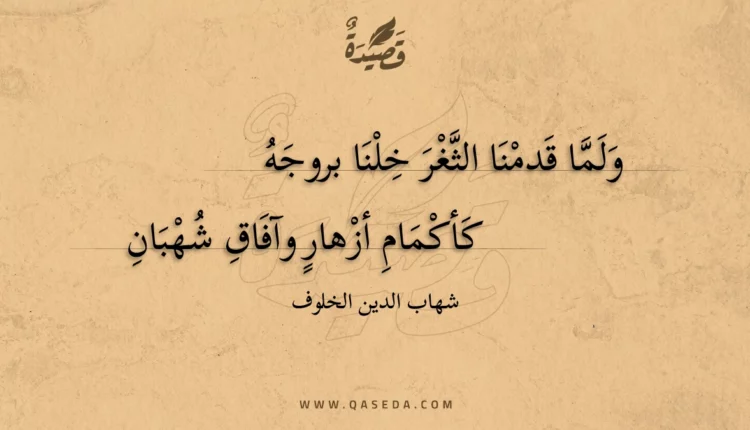 قَصِيْدَةٌ
وَلَمَّا قَدمْنَا الثَّغْرَ خِلْنَا بروجَهُ
كَأكْمَامِ أزْهارٍ وآفَاقِ شُهْبَانِ
شهاب الدين الخلوف
WWW.QASEDA.COM